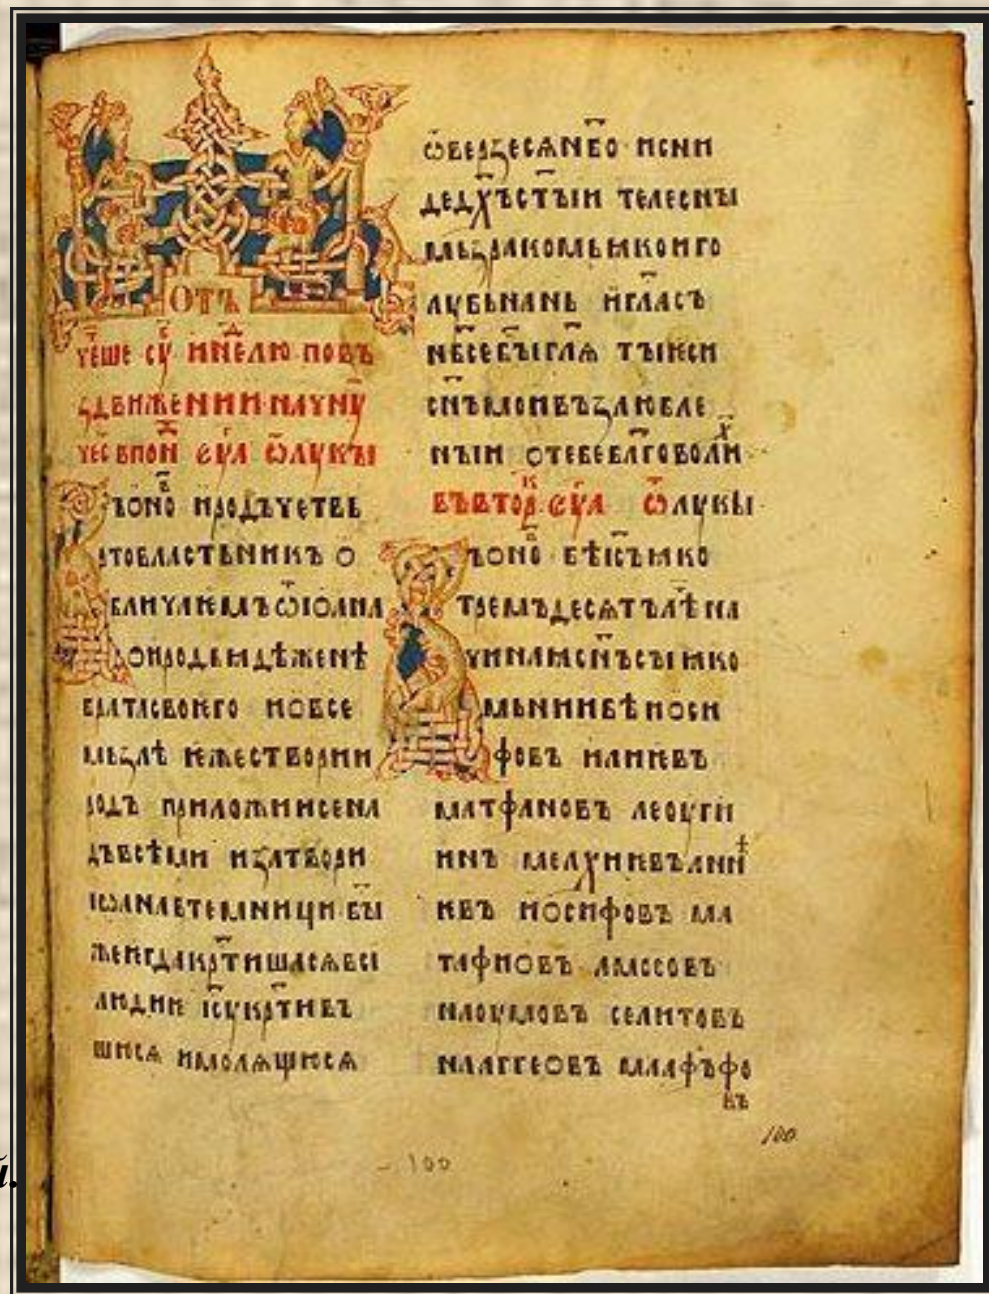 ОТЪ
ЧЕШЕ СУ И НЕДЛЮ ПОВЪ
ЗДВИЖЕНИИ НАЧНУ
ЧЕС ВПОН ЕУА Ѿ ЛУКЫ
ЪОНО ИРОДЪЧЕТВЬ
РТОВЛАСТЬНИКЪ О
БЛИЧАЮМЪ Ѿ ІОАНА
ОИРОДЬЯДѢЖЕНѢ
БРАТАСВОѤГО ИОВСЕ
МЬЗЛѢ ѤЖЕСТВОРИИ
РОДЪ ПРИЛОЖИИСЕНА
ДЪВСѢМИ ИЗАТВОРИ
ІѠАНАВТЕМНИЦИ БЫ
ЖЕѤГДАКРТИШАСѦВСІ
ЛЮДИИ ІСУКРТИВЪ
ШЮСѦ ИМОЛѦЩЮСѦ
ѾВЕРЗЕСѦНБО ИСНИ
ДЕДХЪСТЪІИ ТЕЛЕСНЫ
МЬЗРАКОМЬꙖКОИГО
ЛУБЬНАНЬ ИГЛАСЪ
НБСЕБЪІГЛѦ ТЫѤСИ
СНЪМОИВЪЗЛЮБЛЕ
НЪІИ ОТЕБЕБЛГОВОЛИХ
ВЪВТОРК ЕУА Ѿ ЛУКЫ
ЪОНО БѢІСЪꙖКО
ТРЕМЪДЕСѦТЪЛѢНА
ЧИНАꙖСНЪСЫꙖКО
МЬНИИВѢИОСИ
ФОВЪ ИЛИѤВЪ
МАТФАНОВЪ ЛЕОУГИ
ИНЪ МЕЛХИѤВЪАНИ
ѤВЪ ИОСИФОВЪ МА
ТАФИОВЪ АМОСОВЪ
НАОУМОВЪ СЕЛИТОВЪ
НААГГЕОВЪ МААФЪФО
ВЪ
100
100
й.